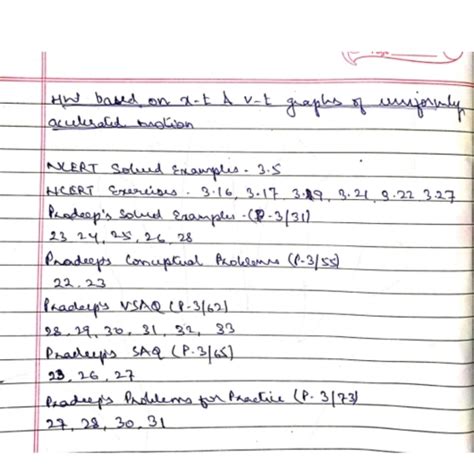 HW based on x-t & v-t graphs of uniformly
accelerated motion
NCERT Solved Examples - 3.5
NCERT Exercises - 3.16, 3.17, 3.19, 3.21, 3.22 3.27
Pradeep's Solved Examples - (P-3/31)
23 24, 25, 26, 28
Pradeep's Conceptual Problems (P-3/55)
22, 23
Pradeep's VSAQ (P-3/62)
28, 29, 30, 31, 32, 33
Pradeep's SAQ (P-3/65)
23, 26, 27
Pradeep's Problems for Practice (P. 3/73)
27, 28, 30, 31